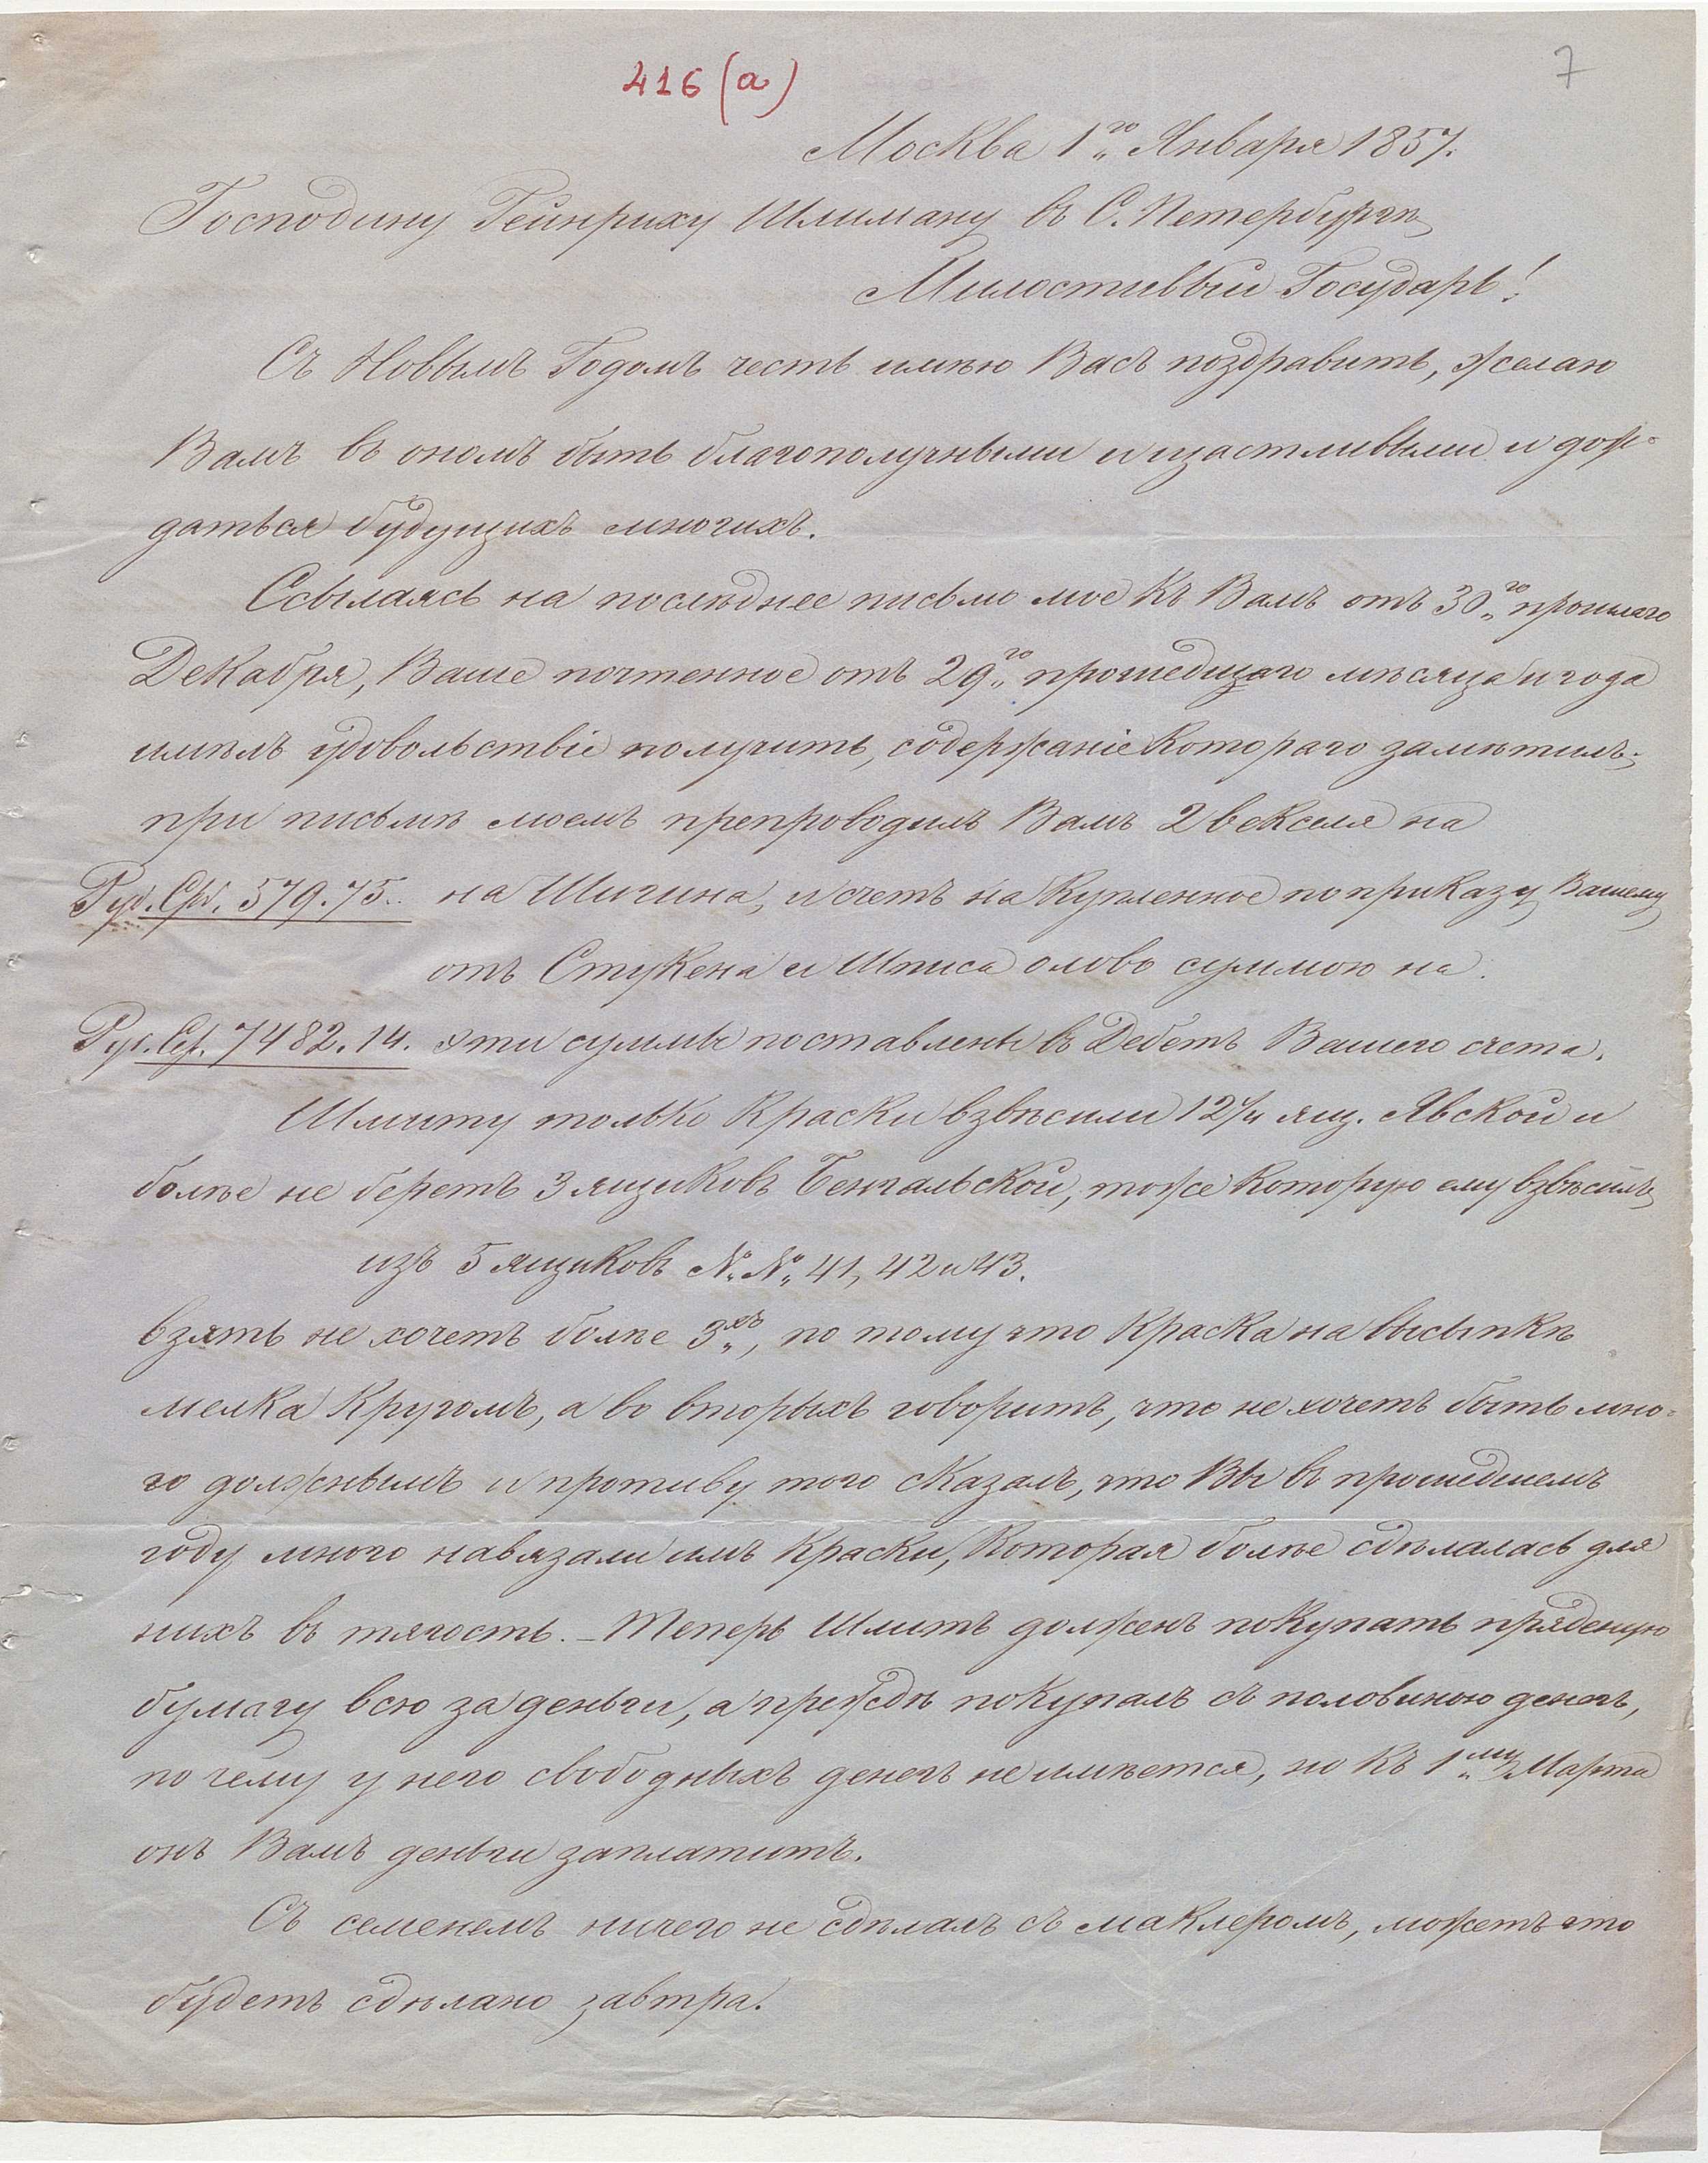 416 (а)
7
Москва 1го Января 1857.
Господину Гейнриху Шлиману въ С. Петербургѣ
Милостивый Государь!
Съ Новымъ Годомъ честь имѣю Васъ поздравить, желаю
Вамъ въ ономъ быть благополучными и щастливыми и дож-
даться будущихъ многихъ.
Ссылаясь на послѣднее письмо мое Къ Вамъ отъ 30го прошлаго
Декабря, Ваше почтенное отъ 29го прошедшаго мѣсяца и года
имѣлъ удовольствіе получить, содержаніе Котораго замѣтилъ;
при письмѣ моемъ препроводилъ Вамъ 2 векселя на
Руб. Ср. 579.75. на Шигина, и счетъ на Купленное по приказу Вашему
отъ Стукена и Шписа олово суммою на
Руб. Ср. 7482.14. эти суммы поставлены въ Дебетъ Вашего счета.
Шмиту только Краски взвѣсили 12/4 ящ. Явской и
болѣе не беретъ 3 ящиковъ Бенгальской, тоже Которую ему взвѣсилъ
изъ 5 ящиковъ №№ 41, 42 и 43.
взять не хочетъ болѣе 3хъ, по тому что Краска на высыпкѣ
мелка Кругомъ, а во вторыхъ говоритъ, что не хочетъ быть мно-
го должнымъ и противу того сказалъ, что Вы въ прошедшемъ
году много навязали имъ Краски, Которая болѣе сдѣлалась для
нихъ въ тягость. – Теперь Шмитъ долженъ покупать пряденую
бумагу всю за деньги, а прежде покупалъ съ половиною денегъ,
по чему у него свободныхъ денегъ не имѣется, но Къ 1му Марта
онъ Вамъ деньги заплатитъ.
Съ семенемъ ничего не сдѣлалъ съ маклеромъ, можетъ что
будетъ сдѣлано завтра.